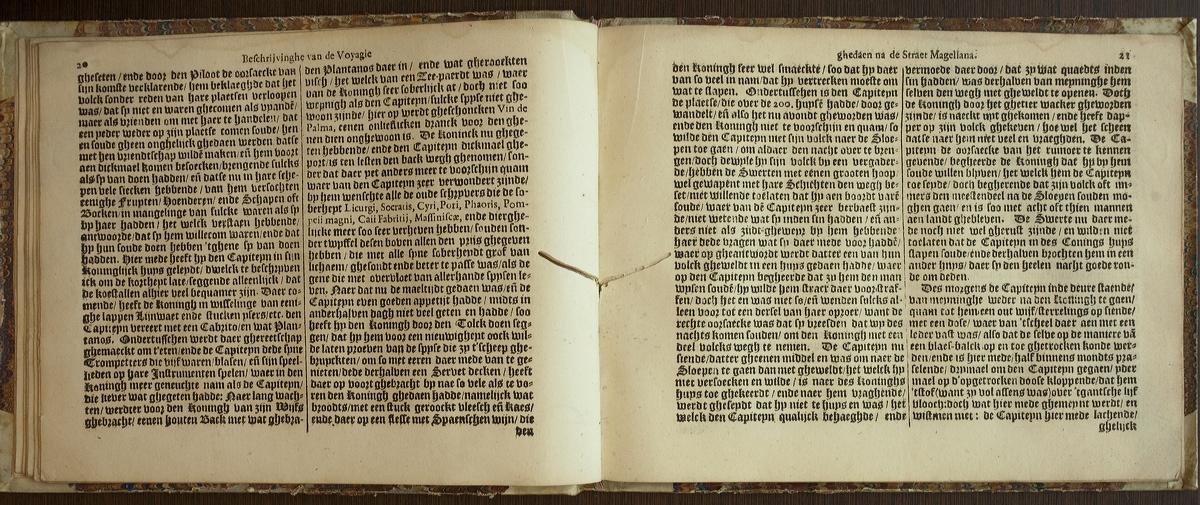 20
Beschrijvinghe van de Voyagie
gheseten / ende door den Piloot de oorsaecke van
sijn komste verklarende / hem beklaeghde dat het
volck sonder reden van hare plaetsen verloopen
was / dat sy niet en waren ghecomen als vyandē /
maer als vrienden om met haer te handelen / dat
een yeder weder op zijn plaetse comen soude / hen
en soude gheen onghelijck ghedaen werden datse
met hen vriendtschap wilde maken / eñ hem voort
aen dickmael komen besoecken / brengende sulcks
als sy van doen hadden / eñ datse nu in hare sche-
pen vele siecken hebbende / van hem versochten
eenighe Fruyten / Hoenderen / ende Schapen oft
Bocken / in mangelinge van sulcke waren als sy
by haer hadden / het welck verstaen hebbende /
antwoorde / dat sy hem willecom waren / ende dat
hy hun soude doen hebben 'tghene sy van doen
hadden. Hier mede heeft hy den Capiteyn in sijn
Koninglijck huys geleydt / d'welck te beschryven
ick om de kortheyt late / seggende alleenlijck / dat
de koestallen alhier veel bequamer zijn. Daer co-
mende / heeft de Koningh in wisselinge van eeni-
ghe lappen Lijnwaet ende stucken yser / etc. den
Capiteyn vereert met een Cabrito / en wat Plan-
tanos. Ondertusschen werdt daer ghereetschap
ghemaeckt om t'eten / ende de Capiteyn dede syne
Trompetters die vijf waren / blasen / eñ sijn speel-
lieden op hare Instrumenten spelen / waer in den
Koningh meer geneuchte nam als de Capiteyn /
die liever wat ghegeten hadde: Naer lang wach-
ten / werdter voor den Koningh van zijn Wijfs
ghebracht / eenen houten Back met wat ghebra-
den Plantanos daer in / ende wat gheroockten
visch / het welck van een Zee-paerdt was / waer
van de Koningh seer soberlijck at / doch niet soo
weynigh als den Capiteyn / sulcke spyse niet ghe-
woon zijnde / hier op werdt gheschoncken Vin de
Palma, eenen onliefflicken dranck voor den ghe-
nen dien onghewoon is. De Koninck nu ghege-
ten hebbende / ende den Capiteyn dickmael ghe-
port / is ten lesten den back wegh ghenomen / son-
der dat daer yet anders meer te voorschijn quam
waer van den Capiteyn zeer verwondert zijnde /
by hem wenschte alle de oude schryvers die de so-
berheyt Licurgi, Socratis, Cyri, Pori, Phaoris, Pom-
peii magni, Caii Fabritij, Massiniscæ, ende dierghe-
lijcke meer soo seer verheven hebben / souden son-
der twyffel desen boven allen den prijs ghegeven
hebben / die met alle syne soberheydt grof van
lichaem / ghesondt ende beter te passe was / als de
gene die met overvloet van allerhande spysen le-
ven. Naer dat nu de maeltijdt gedaen was / eñ de
Capiteyn even goeden appetijt hadde / midts in
anderhalven dagh niet veel geten en hadde / soo
heeft hy den Koningh door den Tolck doen seg-
gen / dat hy hem voor een nieuwigheyt oock wil-
de laten proeven van de spyse die zy t'scheep ghe-
bruyckten / om so met eeren daer mede van te ge-
nieten / dede derhalven een Servet decken / heeft
daer op voort ghebracht by nae so vele als te vo-
ren den Koningh ghedaen hadde / namelijck wat
broodts / met een stuck geroockt vleesch eñ Kaes /
ende daer op een flesse met Spaenschen wijn / die
den
ghedaen na de Straet Magellana.
21
den Koningh seer wel smaeckte / soo dat hy daer
van so veel in nam / dat hy vertrecken moeste om
wat te slapen. Ondertusschen is den Capiteyn
de plaetse / die over de 200. huysē hadde / door ge-
wandelt / eñ also het nu avondt gheworden was /
ende den Koningh niet te voorschijn en quam / so
wilde den Capiteyn met sijn volck naer de Sloe-
pen toe gaen / om aldaer den nacht over te bren-
gen / doch dewyle hy sijn volck by een vergader-
de / hebben de Swerten met eenen grooten hoop
wel gewapent met hare Schichten den wegh be-
set / niet willende toelaten dat hy aen boordt varē
soude / waer van dē Capiteyn zeer verbaest zijn-
de / niet wetende wat sy inden sin hadden / eñ an-
ders niet als zijdt-gheweyr by hem hebbende
haer dede vragen wat sy daer mede voor haddē /
waer op gheantwoordt werdt datter een van hun
volck gheweldt in een huys gedaen hadde / waer
op den Capiteyn begheerde dat zy hem den man
wysen soudē / hy wilde hem stracx daer voor straf-
fen / doch het en was niet so / eñ wenden sulcks al-
leen voor tot een decsel van haer opzet / want de
rechte oorsaecke was dat sy vreesden dat wy des
nachts komen souden / om den Koningh met een
deel volcks wegh te nemen. De Capiteyn nu
siende / datter gheenen middel en was om naer de
Sloepen te gaen dan met gheweldt / het welck hy
niet versoecken en wilde / is naer des Koninghs
huys toe ghekeerdt / ende naer hem vraghende /
werdt gheseydt dat hy niet te huys en was / het
welck den Capiteyn qualijck behaeghde / ende
vermoede daer door / dat zy wat quaedts inden
sin hadden / was derhalven van meyninghe hem
selven den wegh met gheweldt te openen. Doch
de Koningh door het ghetier wacker gheworden
zijnde / is naeckt uyt ghekomen / ende heeft dap-
per op zijn volck ghekeven / hoe wel het scheen
datse naer hem niet veel en vraeghden. De Ca-
piteyn de oorsaecke van het rumoer te kennen
gevende / begheerde de Koningh dat hy by hem
soude willen blyven / het welck hem de Capiteyn
toe seyde / doch begherende dat zijn volck oft im-
mers den meestendeel na de Sloepen souden mo-
ghen gaen / en is soo met acht oft thien mannen
aen landt ghebleven. De Swerte nu daer me-
de noch niet wel gherust zijnde / en wilden niet
toelaten dat de Capiteyn in des Conings huys
slapen soude / ende derhalven brochten hem in een
ander huys / daer sy den heelen nacht goede ron-
de om deden.
Des morgens de Capiteyn inde deure staende /
van meyninghe weder na den Koningh te gaen /
quam tot hem een out wijf / sterrelings op siende /
met een dose / waer van 'tscheel daer aen met een
leder vast was / also dat de selve op de maniere vā
een blaes-balck op en toe ghetrocken konde wer-
den / ende is hier mede / half binnens mondts pra-
selende / drymael om den Capiteyn gegaen / yder
mael op d'opgetrocken doose kloppende / dat hem
'tstof (want zy vol assens was) over 'tgantsche lijf
vlooch: doch wat hier mede ghemeynt werdt / en
wistmen niet: de Capiteyn hier mede lachende /
ghelijck